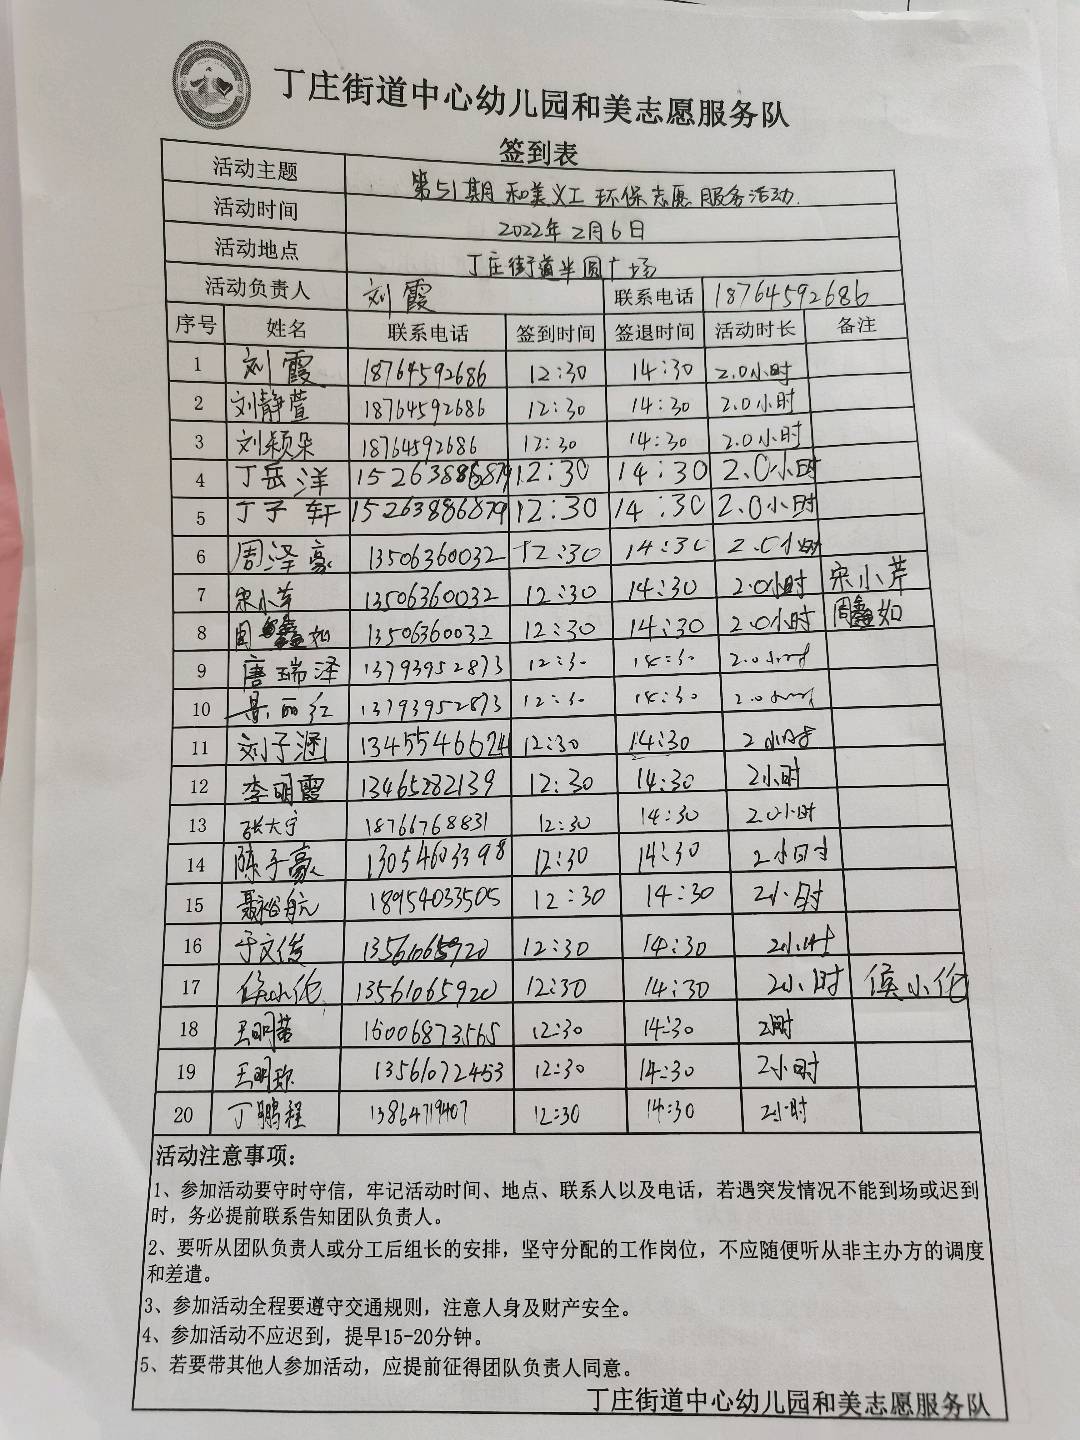 丁庄街道中心幼儿园和美志愿服务队
签到表
活动主题 第51期和美义工环保志愿服务活动.
活动时间 2022年2月6日
活动地点 丁庄街道半圆广场
活动负责人 刘霞 联系电话 18764592686
序号 姓名 联系电话 签到时间 签退时间 活动时长 备注
1 刘霞 18764592686 12:30 14:30 2.0小时
2 刘静萱 18764592686 12:30 14:30 2.0小时
3 刘颖朵 18764592686 12:30 14:30 2.0小时
4 丁岳洋 15263886879 12:30 14:30 2.0小时
5 丁子轩 15263886879 12:30 14:30 2.0小时
6 周泽豪 13506360032 12:30 14:30 2.0小时
7 宋小芹 13506360032 12:30 14:30 2.0小时 宋小芹
8 周鑫如 13506360032 12:30 14:30 2.0小时 周鑫如
9 唐瑞泽 13793952873 12:30 14:30 2.0小时
10 丽红 13793952873 12:30 14:30 2.0小时
11 刘子涵 13455466 12:30 14:30 2小时
12 李明霞 13465282139 12:30 14:30 2小时
13 张大宁 18766768831 12:30 14:30 2.0小时
14 陈子豪 13054603398 12:30 14:30 2小时
15 聂裕航 18954033505 12:30 14:30 2小时
16 于文俊 13561065920 12:30 14:30 2小时
17 侯小伦 13561065920 12:30 14:30 2小时 侯小伦
18 王明 16006873565 12:30 14:30 2小时
19 王明 13561072453 12:30 14:30 2小时
20 丁鹏程 13864719407 12:30 14:30 2小时
活动注意事项：
1、参加活动要守时守信，牢记活动时间、地点、联系人以及电话，若遇突发情况不能到场或迟到
时，务必提前联系告知团队负责人。
2、要听从团队负责人或分工后组长的安排，坚守分配的工作岗位，不应随便听从非主办方的调度
和差遣。
3、参加活动全程要遵守交通规则，注意人身及财产安全。
4、参加活动不应迟到，提早15-20分钟。
5、若要带其他人参加活动，应提前征得团队负责人同意。
丁庄街道中心幼儿园和美志愿服务队